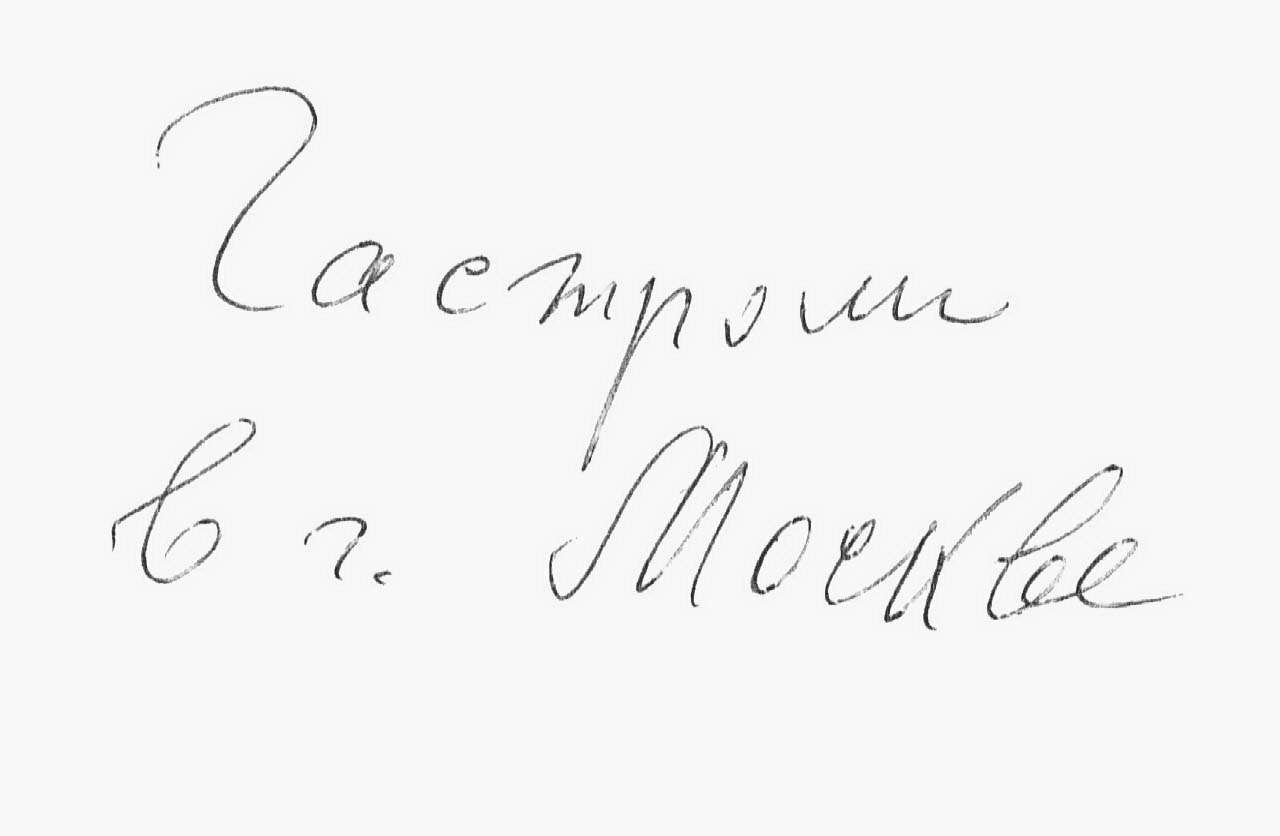 Гастроли
в г. Москве